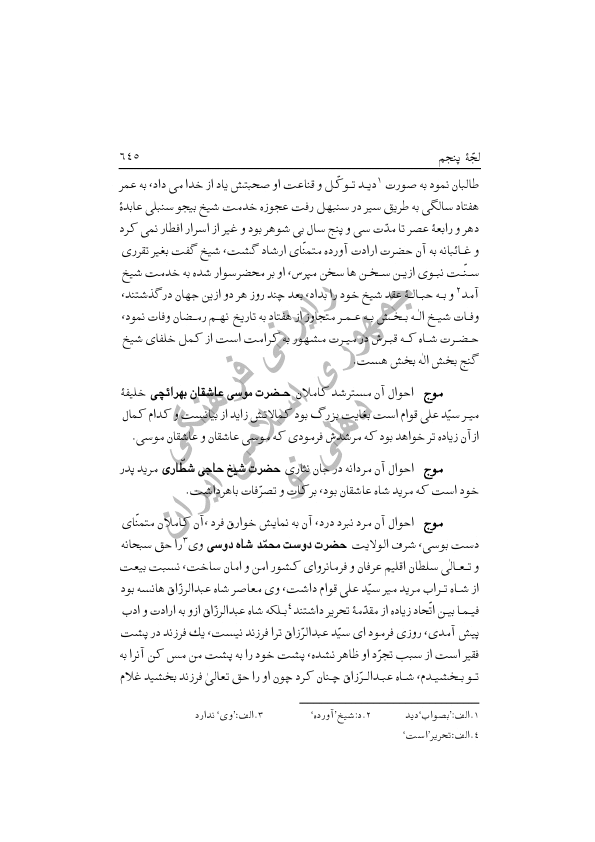 لجّهٔ پنجم ٦٤٥
طالبان نمود به صورت ١ دید توکّل و قناعت او صحبتش یاد از خدا می داد، به عمر
هفتاد سالگی به طریق سیر در سنبهل رفت عجوزه خدمت شیخ بیجو سنبلی عابدهٔ
دهر و رابعهٔ عصر تا مدّت سی و پنج سال بی شوهر بود و غیر از اسرار افطار نمی کرد
و غائبانه به آن حضرت ارادت آورده متمنّای ارشاد گشت، شیخ گفت بغیر تقرری
سنّت نبوی ازین سخن ها سخن مپرس، او بر محضرسوار شده به خدمت شیخ
آمد٢ و به حبالهٔ عقد شیخ خود را بداد، بعد چند روز هر دو ازین جهان درگذشتند،
وفات شیخ اله بخش به عمر متجاوز از هفتاد به تاریخ نهم رمضان وفات نمود،
حضرت شاه که قبرش در میرت مشهور به کرامت است از کمل خلفای شیخ
گنج بخش اله بخش هست.
موج احوال آن مسترشد کاملان حضرت موسی عاشقان بهرائچی خلیفهٔ
میر سیّد علی قوام است بغایت بزرگ بود کمالاتش زاید از بیانست و کدام کمال
ازآن زیاده تر خواهد بود که مرشدش فرمودی که موسی عاشقان و عاشقان موسی.
موج احوال آن مردانه در جان نثاری حضرت شیخ حاجی شطّاری مرید پدر
خود است که مرید شاه عاشقان بود، برکات و تصرّفات باهرداشت.
موج احوال آن مرد نبرد درد، آن به نمایش خوارق فرد، آن کاملان متمنّای
دست بوسی، شرف الولایت حضرت دوست محمّد شاه دوسی وی٣ را حق سبحانه
و تعالٰی سلطان اقلیم عرفان و فرمانروای کشور امن و امان ساخت، نسبت بیعت
از شاه تراب مرید میر سیّد علی قوام داشت، وی معاصر شاه عبدالرزّاق هانسه بود
فیما بین اتّحاد زیاده از مقدّمهٔ تحریر داشتند٤ بلکه شاه عبدالرزّاق ازو به ارادت و ادب
پیش آمدی، روزی فرمود ای سیّد عبدالرّزاق ترا فرزند نیست، یك فرزند در پشت
فقیر است از سبب تجرّد او ظاهر نشده، پشت خود را به پشت من مس کن آنرا به
تو بخشیدم، شاه عبدالرّزاق چنان کرد چون او را حق تعالیٰ فرزند بخشید غلام
١.الف:'بصواب'دید ٢.د:شیخ'آورده' ٣.الف:'وی' ندارد
٤.الف:تحریر'است'
جمهوری اسلامی ایران
رایزنی فرهنگی
دهلی نو